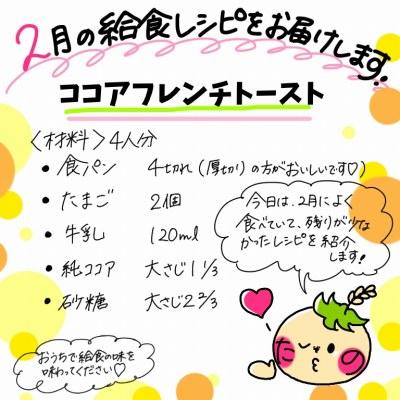 2月の給食レシピをお届けします!!
ココアフレンチトースト
<材料>4人分
• 食パン 4切れ (厚切りの方がおいしいです♡)
• たまご 2個
• 牛乳 120ml
• 純ココア 大さじ1 1/3
• 砂糖 大さじ2 2/3
今日は、2月によく
食べていて、残りが少な
かったレシピを紹介
します!
おうちで給食の味を
味わってください♡
た の